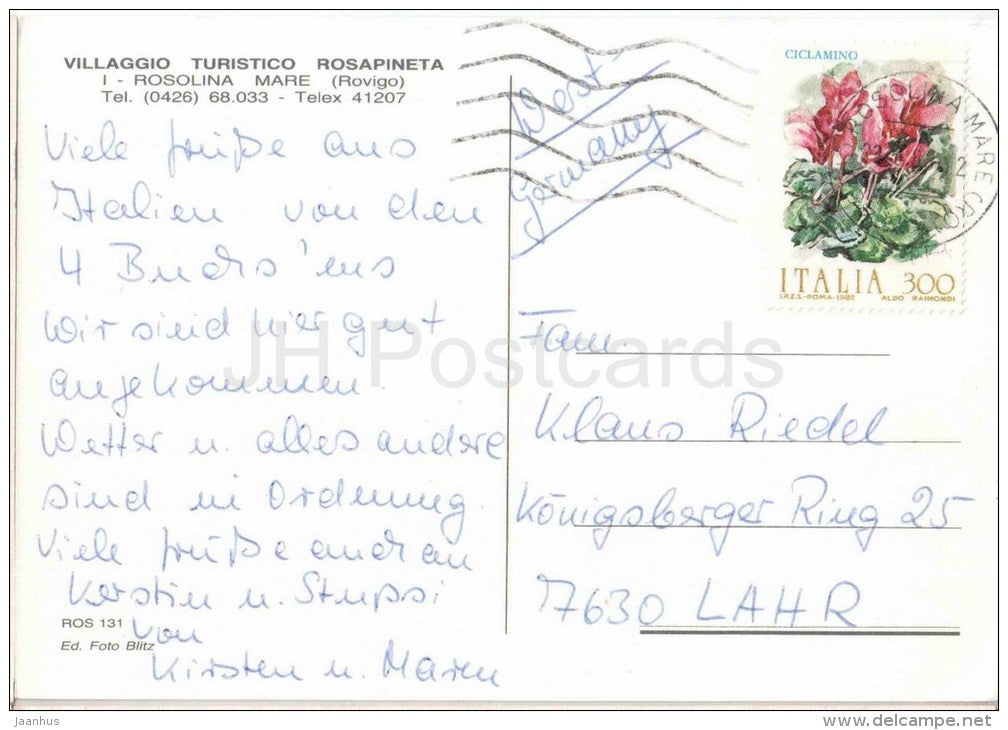 VILLAGGIO TURISTICO ROSAPINETA
I - ROSOLINA MARE (Rovigo)
Tel. (0426) 68.033 - Telex 41207
Viele Grüße aus
Italien von den
4
Wir sind hier gut
angekommen.
Wetter u. alles andere
sind in Ordnung.
Viele Grüße auch an
Kerstin u.
von
Kirsten u. Maren
ROS 131
Ed. Foto Blitz
West-
Germany
CICLAMINO
ITALIA 300
I.P.Z.S.-ROMA-1982 ALDO RAIMONDI
MARE
Fam.
Klaus Riedel
Königsberger Ring 25
7630 LAHR
JH Postcards
Jaanhus
www.delcampe.net